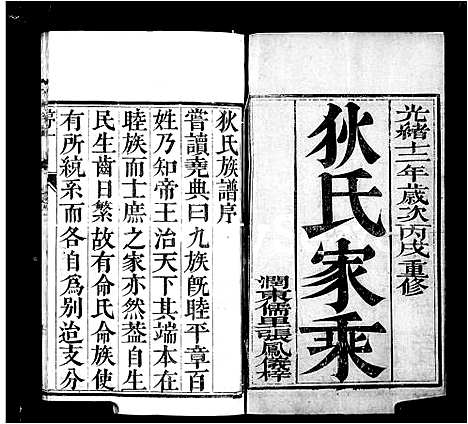 光緒十二年歲次丙戌重修
狄氏家乘
潤東儒里張鳳儀梓
狄氏族譜序
嘗讀堯典曰九族旣睦平章百
姓乃知帝王治天下其端本在
睦族而士庶之家亦然葢自
民生齒日繁故有命氏命族使
有所統系而各自爲別迨支分
序一